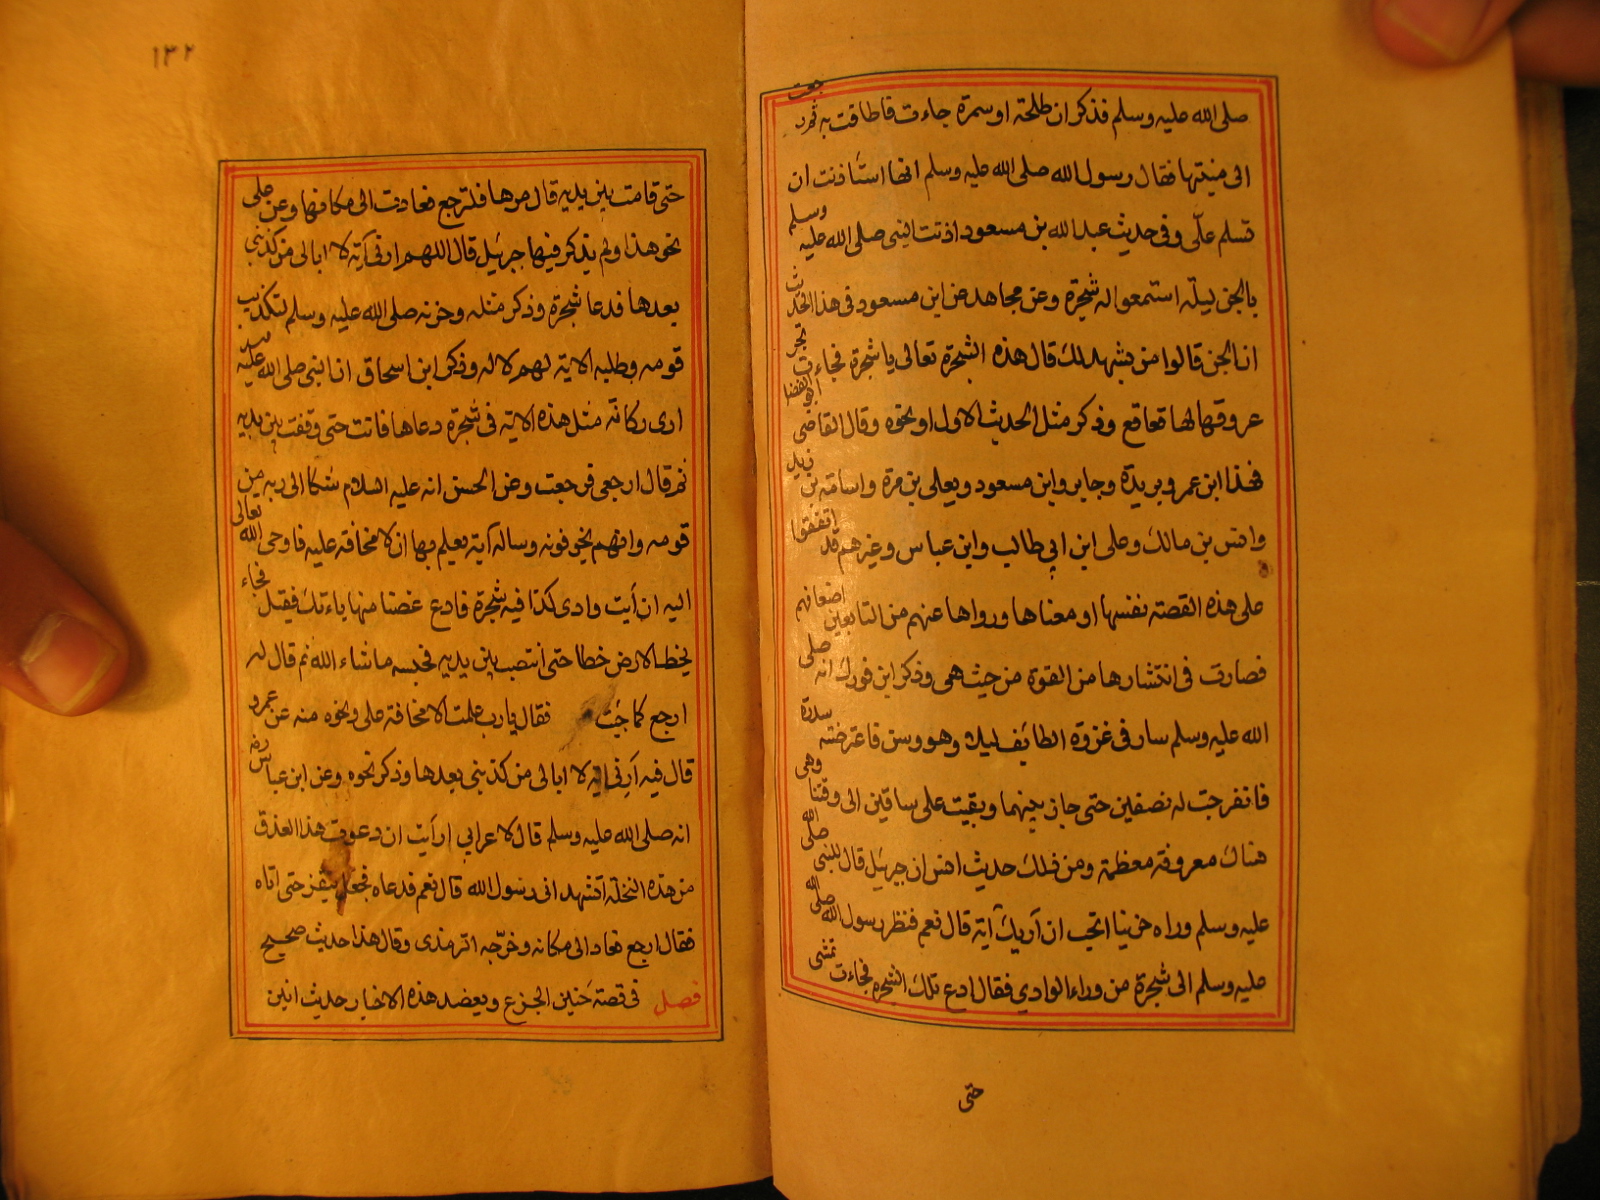 صلى الله عليه وسلم فذكر ان طلحة او سمرة جاءت فاطافت به ثم رجعت
الى منبتها فقال رسول الله صلى الله عليه وسلم انها استأذنت ان
تسلم علىّ وفى حديث عبد الله بن مسعود اذنت النبى صلى الله عليه وسلم
بالجن ليلة استمعوا له شجرة وعن مجاهد عن ابن مسعود فى هذا الحديث
ان الجن قالوا من يشهد لك قال هذه الشجرة تعالى يا شجرة فجاءت تجر
عروقها لها قعاقع وذكر مثل الحديث الاول او نحوه وقال القاضى ابو الفضل
فهذا ابن عمر وبريدة وجابر وابن مسعود ويعلى بن مرة واسامة بن زيد
وانس بن مالك وعلى ابن ابي طالب وابن عباس وغيرهم قد اتفقوا
على هذه القصة نفسها او معناها ورواها عنهم من التابعين اضعافهم
فصارت فى انتشارها من القوة من حيث هى وذكر ابن فورك انه صلى
الله عليه وسلم سار فى غزوة الطائف ليلا وهو وسن فاعترضته سدرة
فانفرجت له نصفين حتى جاز بينهما وبقيت على ساقين الى وقتنا وهى
هناك معروفة معظمة ومن ذلك حديث انس ان جبريل قال للنبى صلى الله
عليه وسلم وراه حزينا اتحب ان اريك اية قال نعم فنظر رسول الله صلى الله
عليه وسلم الى شجرة من وراء الوادي فقال ادع تلك الشجرة فجاءت تمشى
حتى
١٣٢
حتى قامت بين يديه قال مرها فلترجع فعادت الى مكانها وعن على
نحو هذا ولم يذكر فيها جبريل قال اللهم ارنى آية لا ابالى من كذبنى
بعدها فدعا شجرة وذكر مثله وحزنه صلى الله عليه وسلم لتكذيب
قومه وطلبه الاية لهم لا له وذكر ابن اسحاق ان النبى صلى الله عليه وسلم
ارى ركانة مثل هذه الاية فى شجرة دعاها فاتت حتى وقفت بين يديه
ثم قال ارجعى فرجعت وعن الحسن انه عليه السلام شكا الى ربه من
قومه وانهم يخوفونه وساله آية يعلم بها ان لا مخافة عليه فاوحى الله تعالى
اليه ان أيت وادى كذا فيه شجرة فادع غصنا منها ياءتك ففعل فجاء
يخط الارض خطا حتى أنتصب بين يديه فحبسه ما شاء الله ثم قال له
ارجع كما جئت فقال يارب علمت الا مخافة على ونحوه منه عن عمر و
قال فيه أرنى اية لا ابالى من كذبنى بعدها وذكر نحوه وعن ابن عباس رضـ
انه صلى الله عليه وسلم قال لاعرابي ارأيت ان دعوت هذا العذق
من هذه النخلة اتشهد انى رسول الله قال نعم فدعاه فجعل ينقز حتى اتاه
فقال ارجع فعاد الى مكانه وخرّجه الترمذى وقال هذا حديث صحيح
فصل فى قصة حنين الجزع ويعضد هذه الاخبار حديث انين